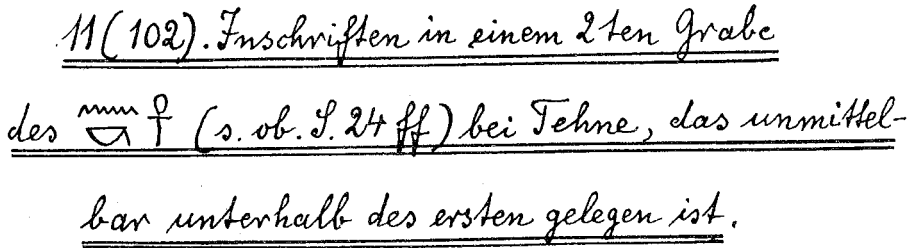 11(102). Inschriften in einem 2ten Grabe
des 𓈖𓎡𓋹 (s. ob. S. 24 ff) bei Tehne, das unmittel-
bar unterhalb des ersten gelegen ist.